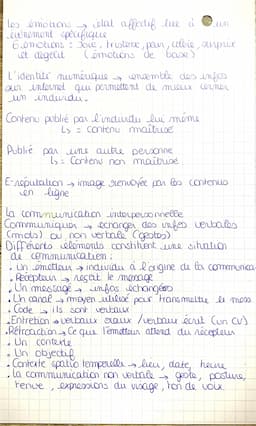 Les émotions → état affectif lié à un
événement spécifique
6 émotions : Joie, tristesse, peur, colère, surprise
et dégoût (émotions de base)
L'identité numérique → ensemble des infos
sur internet qui permettent de mieux cerner
un individu.
Contenu publié par l'individu lui même
↳ = contenu maîtrisé
Publié par une autre personne
↳ = Contenu non maîtrisé
E-réputation → image renvoyée par les contenus
en ligne
La communication interpersonnelle
Communiquer → échanger des infos verbales
(mots) ou non verbale (gestes)
Différents éléments constituent une situation
de communication :
• Un émetteur → individu à l'origine de la communica
• Récepteur → reçoit le message
• Un message → infos échangées
• Un canal → moyen utilisé pour transmettre le mess
• Code → ils sont verbaux
• Entretien → verbaux oraux / verbaux écrit (un CV)
• Rétroaction → Ce que l'émetteur attend du récepteur
• Un contexte
• Un objectif
• Contexte spatio temporelle → lieu, date, heure
• la communication non verbale → geste, posture,
tenue, expressions du visage, ton de voix.